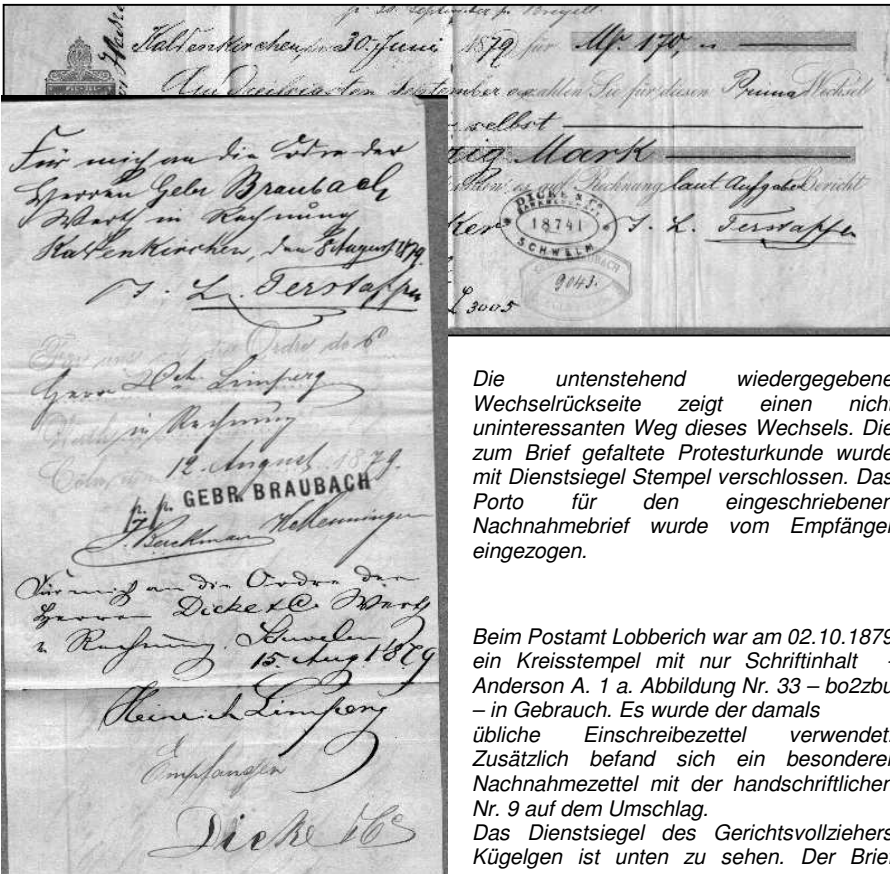 p. 30. September pr Breyell
Kaldenkirchen, 30. Juni 1879 für Mk. 170, "
Am Dreißigsten September zahlen Sie für diesen Prima Wechsel
selbst
zig Mark
Rechnung laut Aufgabe Bericht
DICKE & Co
18741
SCHWELM
J. L. Terstappen
9043.
3005
Für mich an die Ordre der
Herren Gebr Braubach
Werth in Rechnung
Kaldenkirchen, den 8 August 1879.
J. L. Terstappen
Für uns an die Ordre des
Herrn Hch. Limperg
Werth in Rechnung
Cöln, 12. August 1879.
p. p. GEBR. BRAUBACH
Für mich an die Ordre der
Herren Dicke & Co. Werth
i Rechnung. Schwelm
15. Aug 1879
Heinrich Limperg
Empfangen
Dicke & Co
Die untenstehend wiedergegebene
Wechselrückseite zeigt einen nicht
uninteressanten Weg dieses Wechsels. Die
zum Brief gefaltete Protesturkunde wurde
mit Dienstsiegel Stempel verschlossen. Das
Porto für den eingeschriebenen
Nachnahmebrief wurde vom Empfänger
eingezogen.
Beim Postamt Lobberich war am 02.10.1879
ein Kreisstempel mit nur Schriftinhalt -
Anderson A. 1 a. Abbildung Nr. 33 – bo2zbu
– in Gebrauch. Es wurde der damals
übliche Einschreibezettel verwendet.
Zusätzlich befand sich ein besonderer
Nachnahmezettel mit der handschriftlichen
Nr. 9 auf dem Umschlag.
Das Dienstsiegel des Gerichtsvollziehers
Kügelgen ist unten zu sehen. Der Brief